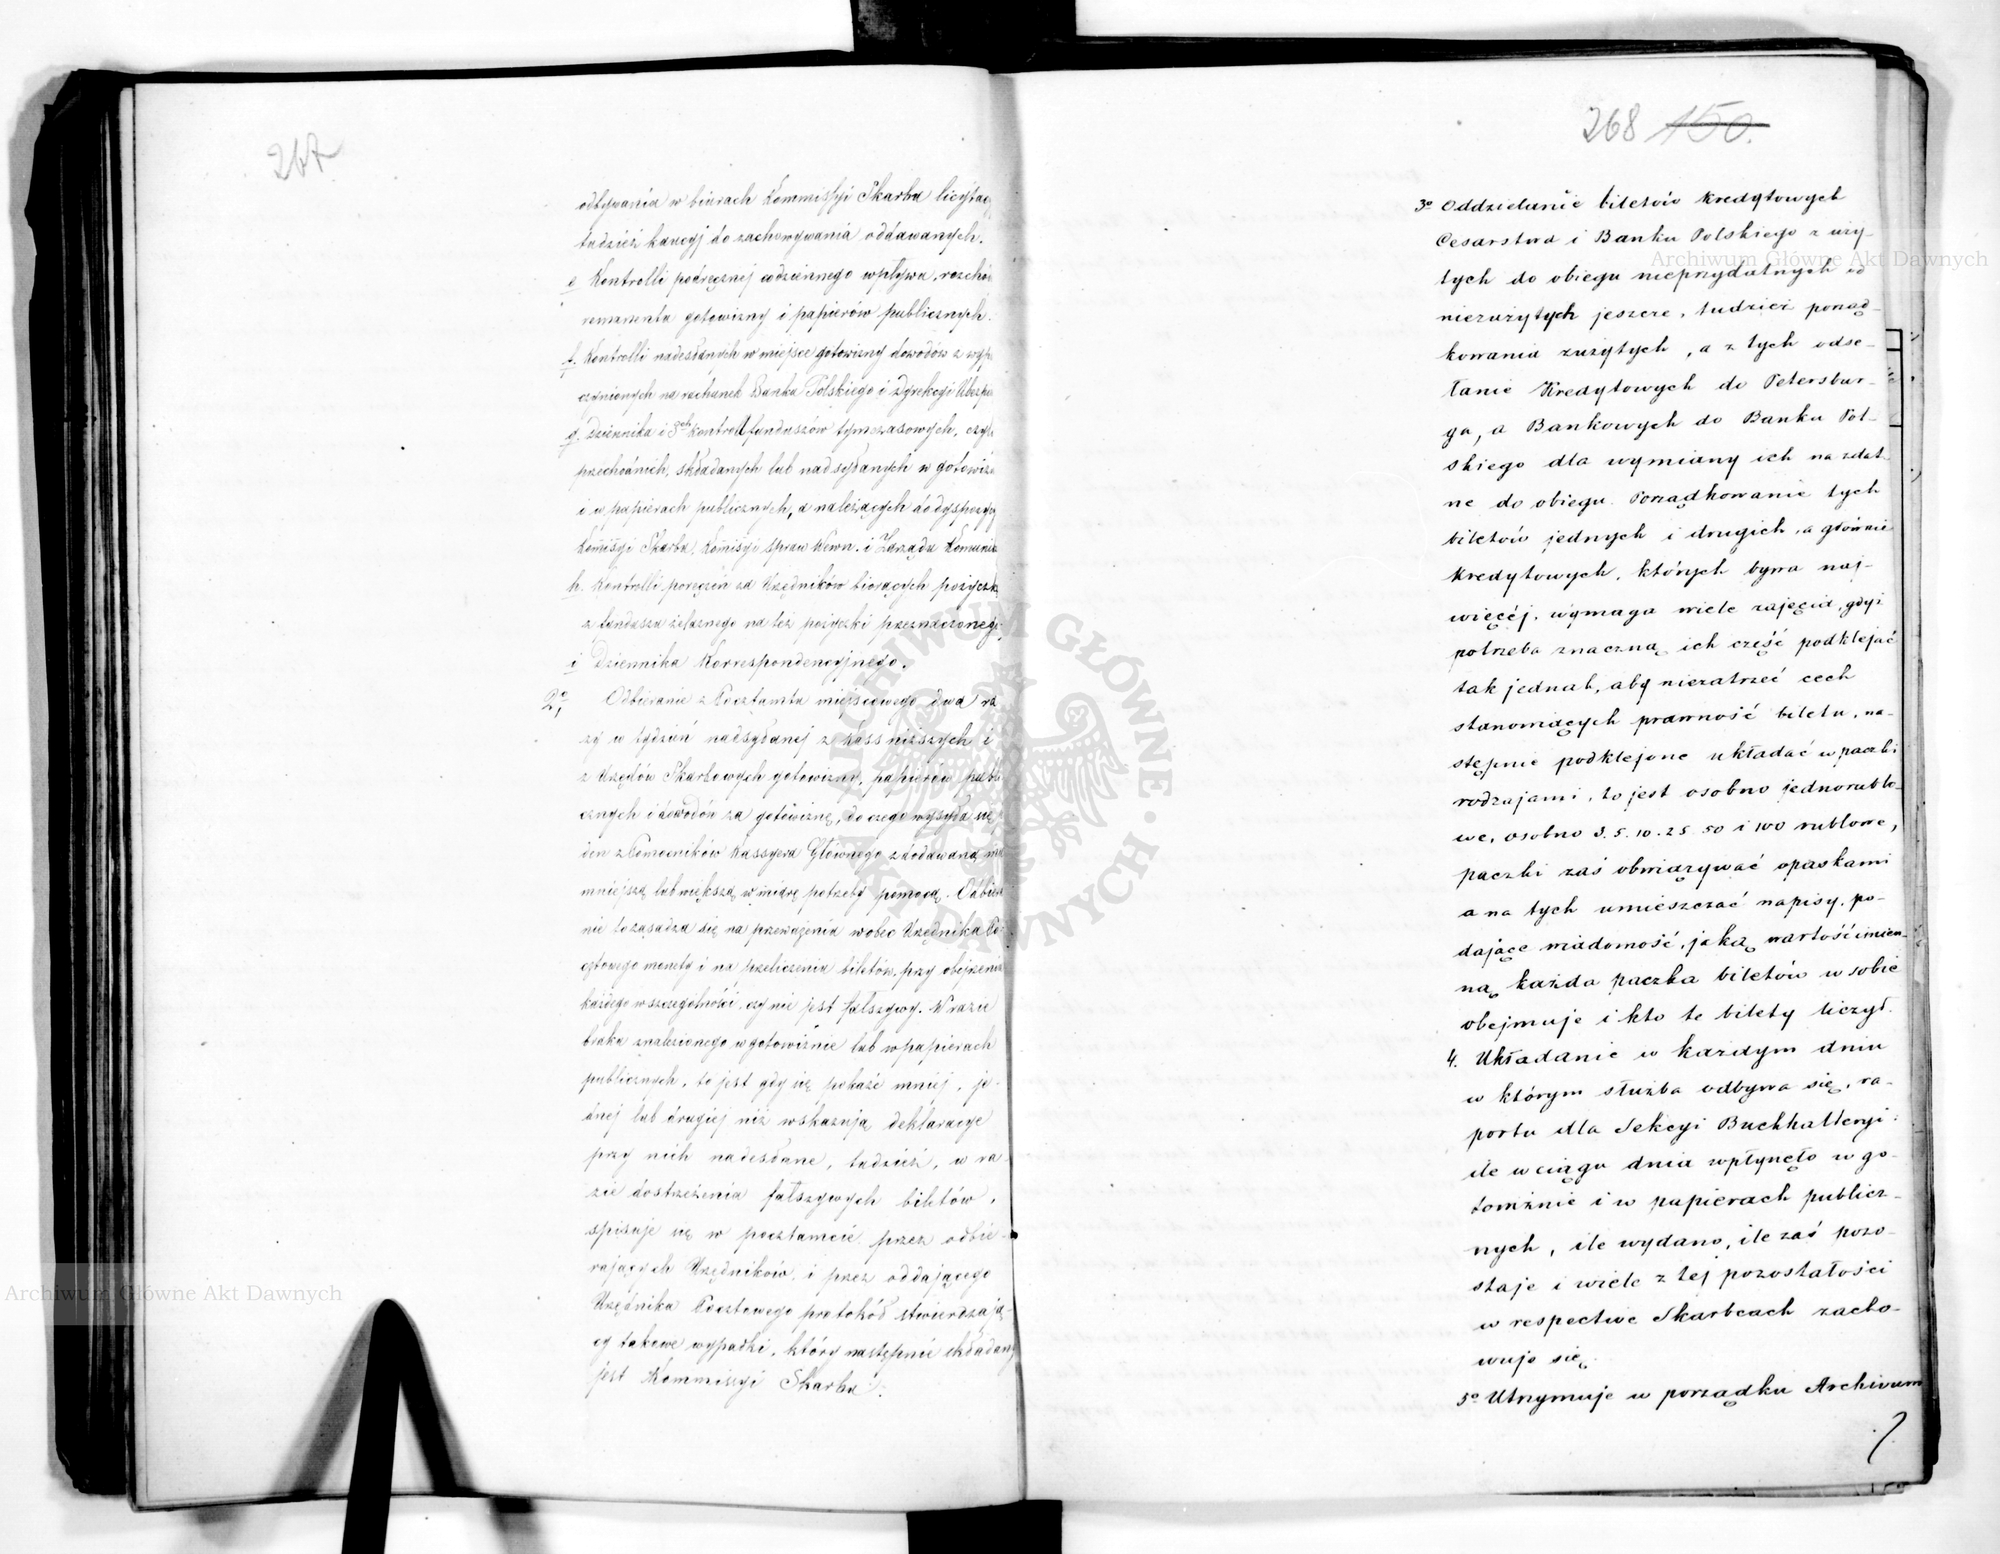 267
odbywania w biurach Kommissyi Skarbu licytacy
tudzież kaucyj do zachowywania oddawanych.
e Kontrolli podręcznej codziennego wpływu, rozcho
remanentu gotowizny i papierów publicznych.
f. Kontrolli nadesłanych w miejsce gotowizny dowodów z wyp
czynionych na rachunek Banku Polskiego i Dyrekcyi Ubezpie
g. Dziennika i 3ch kontroll funduszów tymczasowych, czyli
przechodnich, składanych lub nadsyłanych w gotowiźn
i w papierach publicznych, a należących do dyspozycyi
Komisyi Skarbu, Komisyi Spraw Wewn. i Zarządu Komunik
h. Kontrolli poręczeń za Urzędników biorących pożyczk
z funduszu żelaznego na też pożyczki przeznaczoneg
i Dziennika Korrespondencyjnego.
2o, Odbieranie z Pocztamtu miejscowego dwa ra
zy w tydzień nadsyłanej z Kass niższych i
z Urzędów Skarbowych gotowizny, papierów publi
cznych i dowodów za gotowiznę, do czego wysyła się je
den z Pomocników Kassyera Głównego z dodawaną mu
mniejszą lub większą w miarę potrzeby pomocą. Odbiera
nie to zasadza się na przeważeniu wobec Urzędnika Po
cztowego monety i na przeliczeniu biletów, przy obejrzeniu
każdego w szczególności, czy nie jest fałszywy. W razie
braku znalezionego w gotowiźnie lub w papierach
publicznych, to jest gdy się pokaże mniej, je-
dnej lub drugiej niż wskazują deklaracye
przy nich nadesłane, tudzież, w ra-
zie dostrzeżenia fałszywych biletów,
spisuje się w pocztamcie przez odbie-
rających Urzędników, i przez oddającego
Urzędnika Pocztowego protokół stwierdzają-
cy takowe wypadki, który następnie składany
jest Kommissyi Skarbu.
268 150.
3o Oddzielanie biletów kredytowych
Cesarstwa i Banku Polskiego zuży-
tych do obiegu nieprzydatnych od
niezużytych jeszcze, tudzież porząd-
kowania zużytych, a z tych odse-
łanie Kredytowych do Petersbur-
ga, a Bankowych do Banku Pol-
skiego dla wymiany ich na zdat-
ne do obiegu. Porządkowanie tych
biletów jednych i drugich, a głównie
kredytowych, których bywa naj-
więcéj, wymaga wiele zajęcia, gdyż
potrzeba znaczną ich część podklejać
tak jednak, aby niezatrzeć cech
stanowiących prawność biletu, na-
stępnie podklejone układać w paczki
rodzajami, to jest osobno jednorublo-
we, osobno 3. 5. 10. 25. 50 i 100 rublowe,
paczki zaś obwiązywać opaskami
a na tych umieszczać napisy, po-
dające wiadomość, jaką wartość imien-
ną każda paczka biletów w sobie
obejmuje i kto te bilety liczył.
4. Układanie w każdym dniu
w którym służba odbywa się, ra-
portu dla Sekcyi Buchhalteryi:
ile w ciągu dnia wpłynęło w go-
towiźnie i w papierach publicz-
nych, ile wydano, ile zaś pozo-
staje i wiele z tej pozostałości
w respective Skarbcach zacho-
wuje się.
5o Utrzymuje w porządku Archiwum
Archiwum Główne Akt Dawnych
Archiwum Główne Akt Dawnych
ARCHIWUM GŁÓWNE AKT DAWNYCH